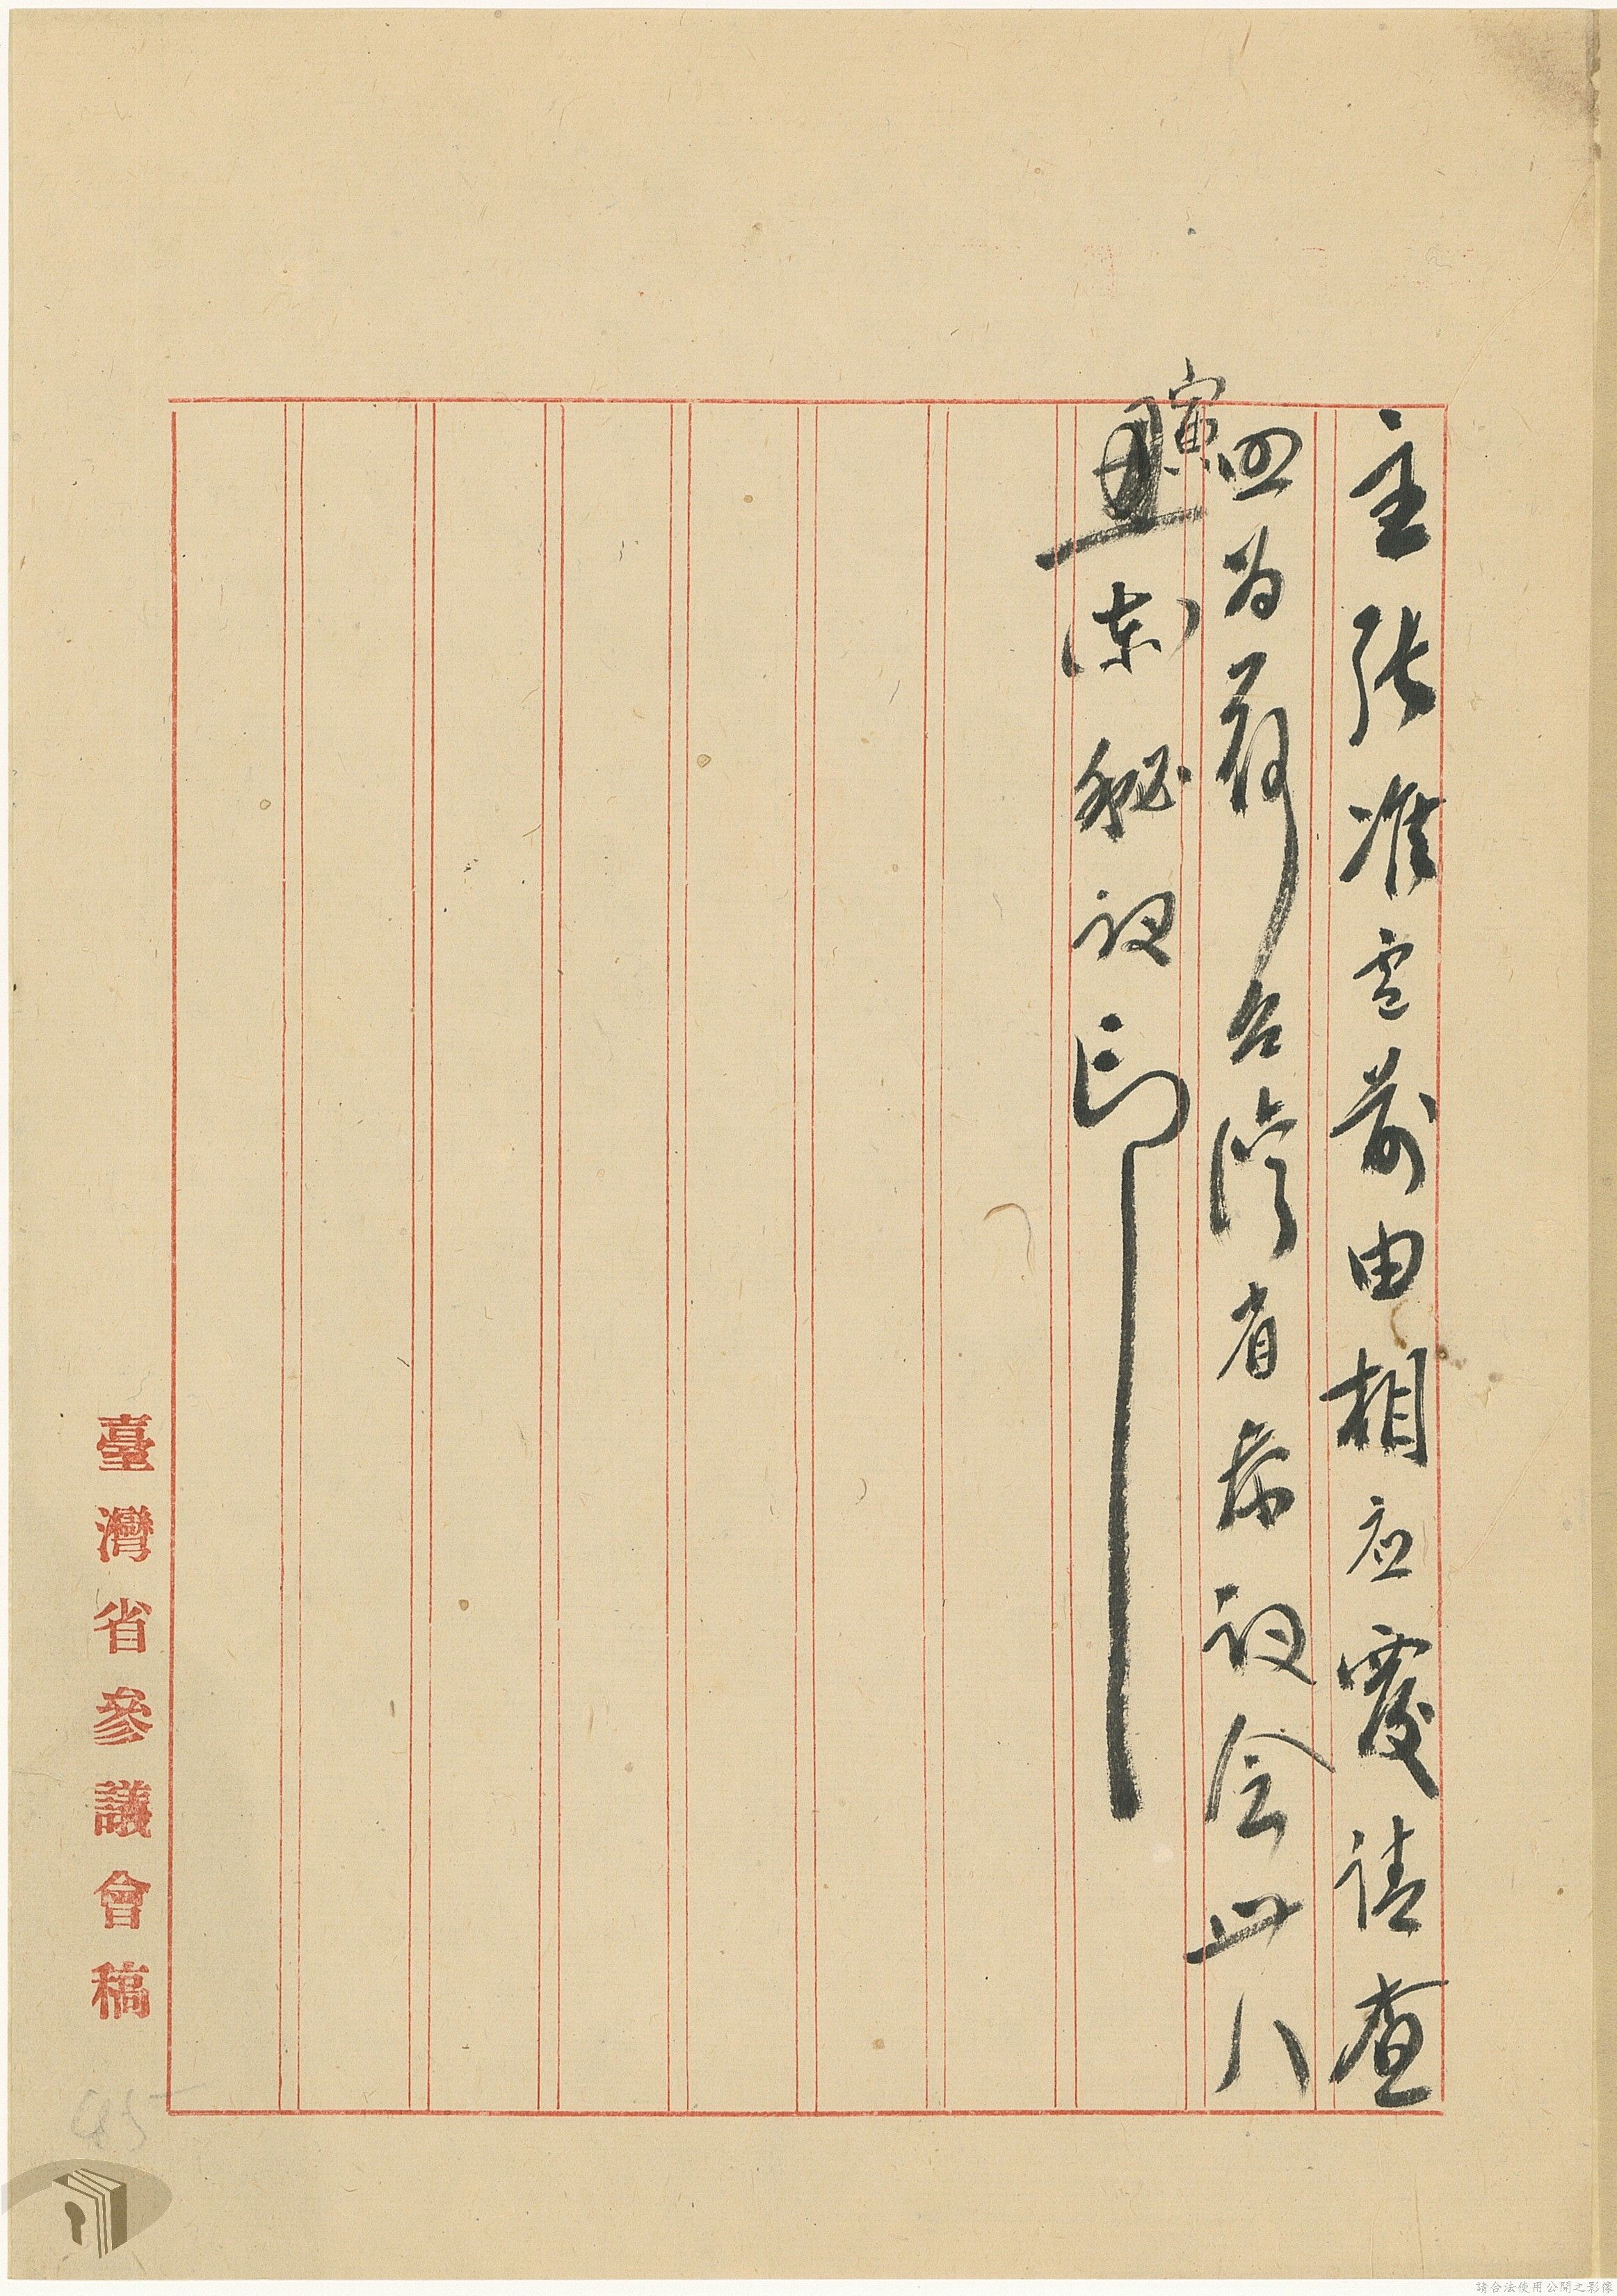 主張准電前由相应覆請查
照為荷台灣省參議会卅八
寅
東秘議印
臺灣省參議會稿
485
請合法使用公開之影像